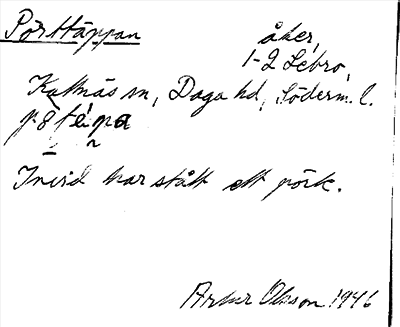 Pörttäppan åker,
1-2 Lebro,
Kattnäs sn, Daga hd, Söderm. l.
Invid har stått ett pörte.
Artur Olsson 1946